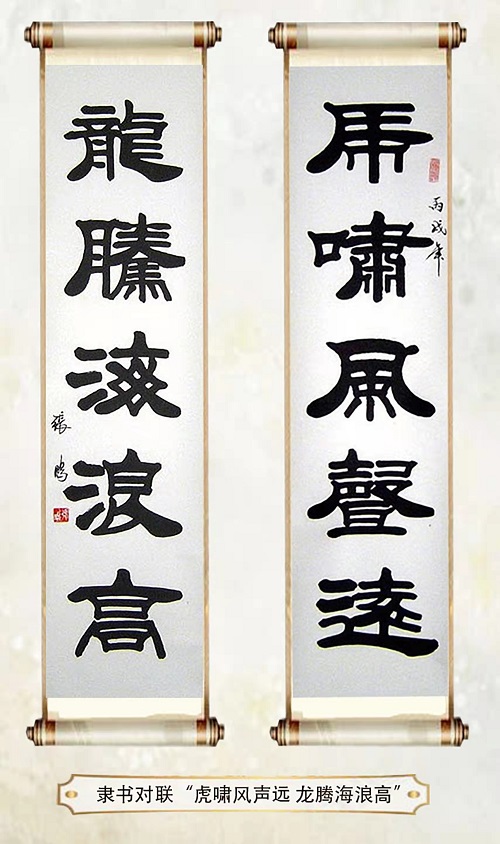 虎嘯風聲遠
丙戌年
龍騰海浪高
張鵬
隶书对联“虎啸风声远 龙腾海浪高”